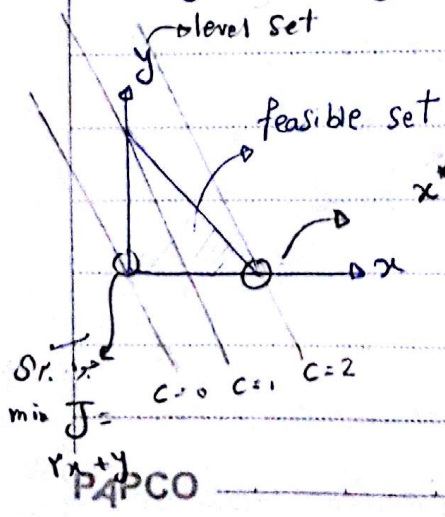 level set
y
feasible set
x*
x
C=0 C=1 C=2
min J=
2x+y
PAPCO